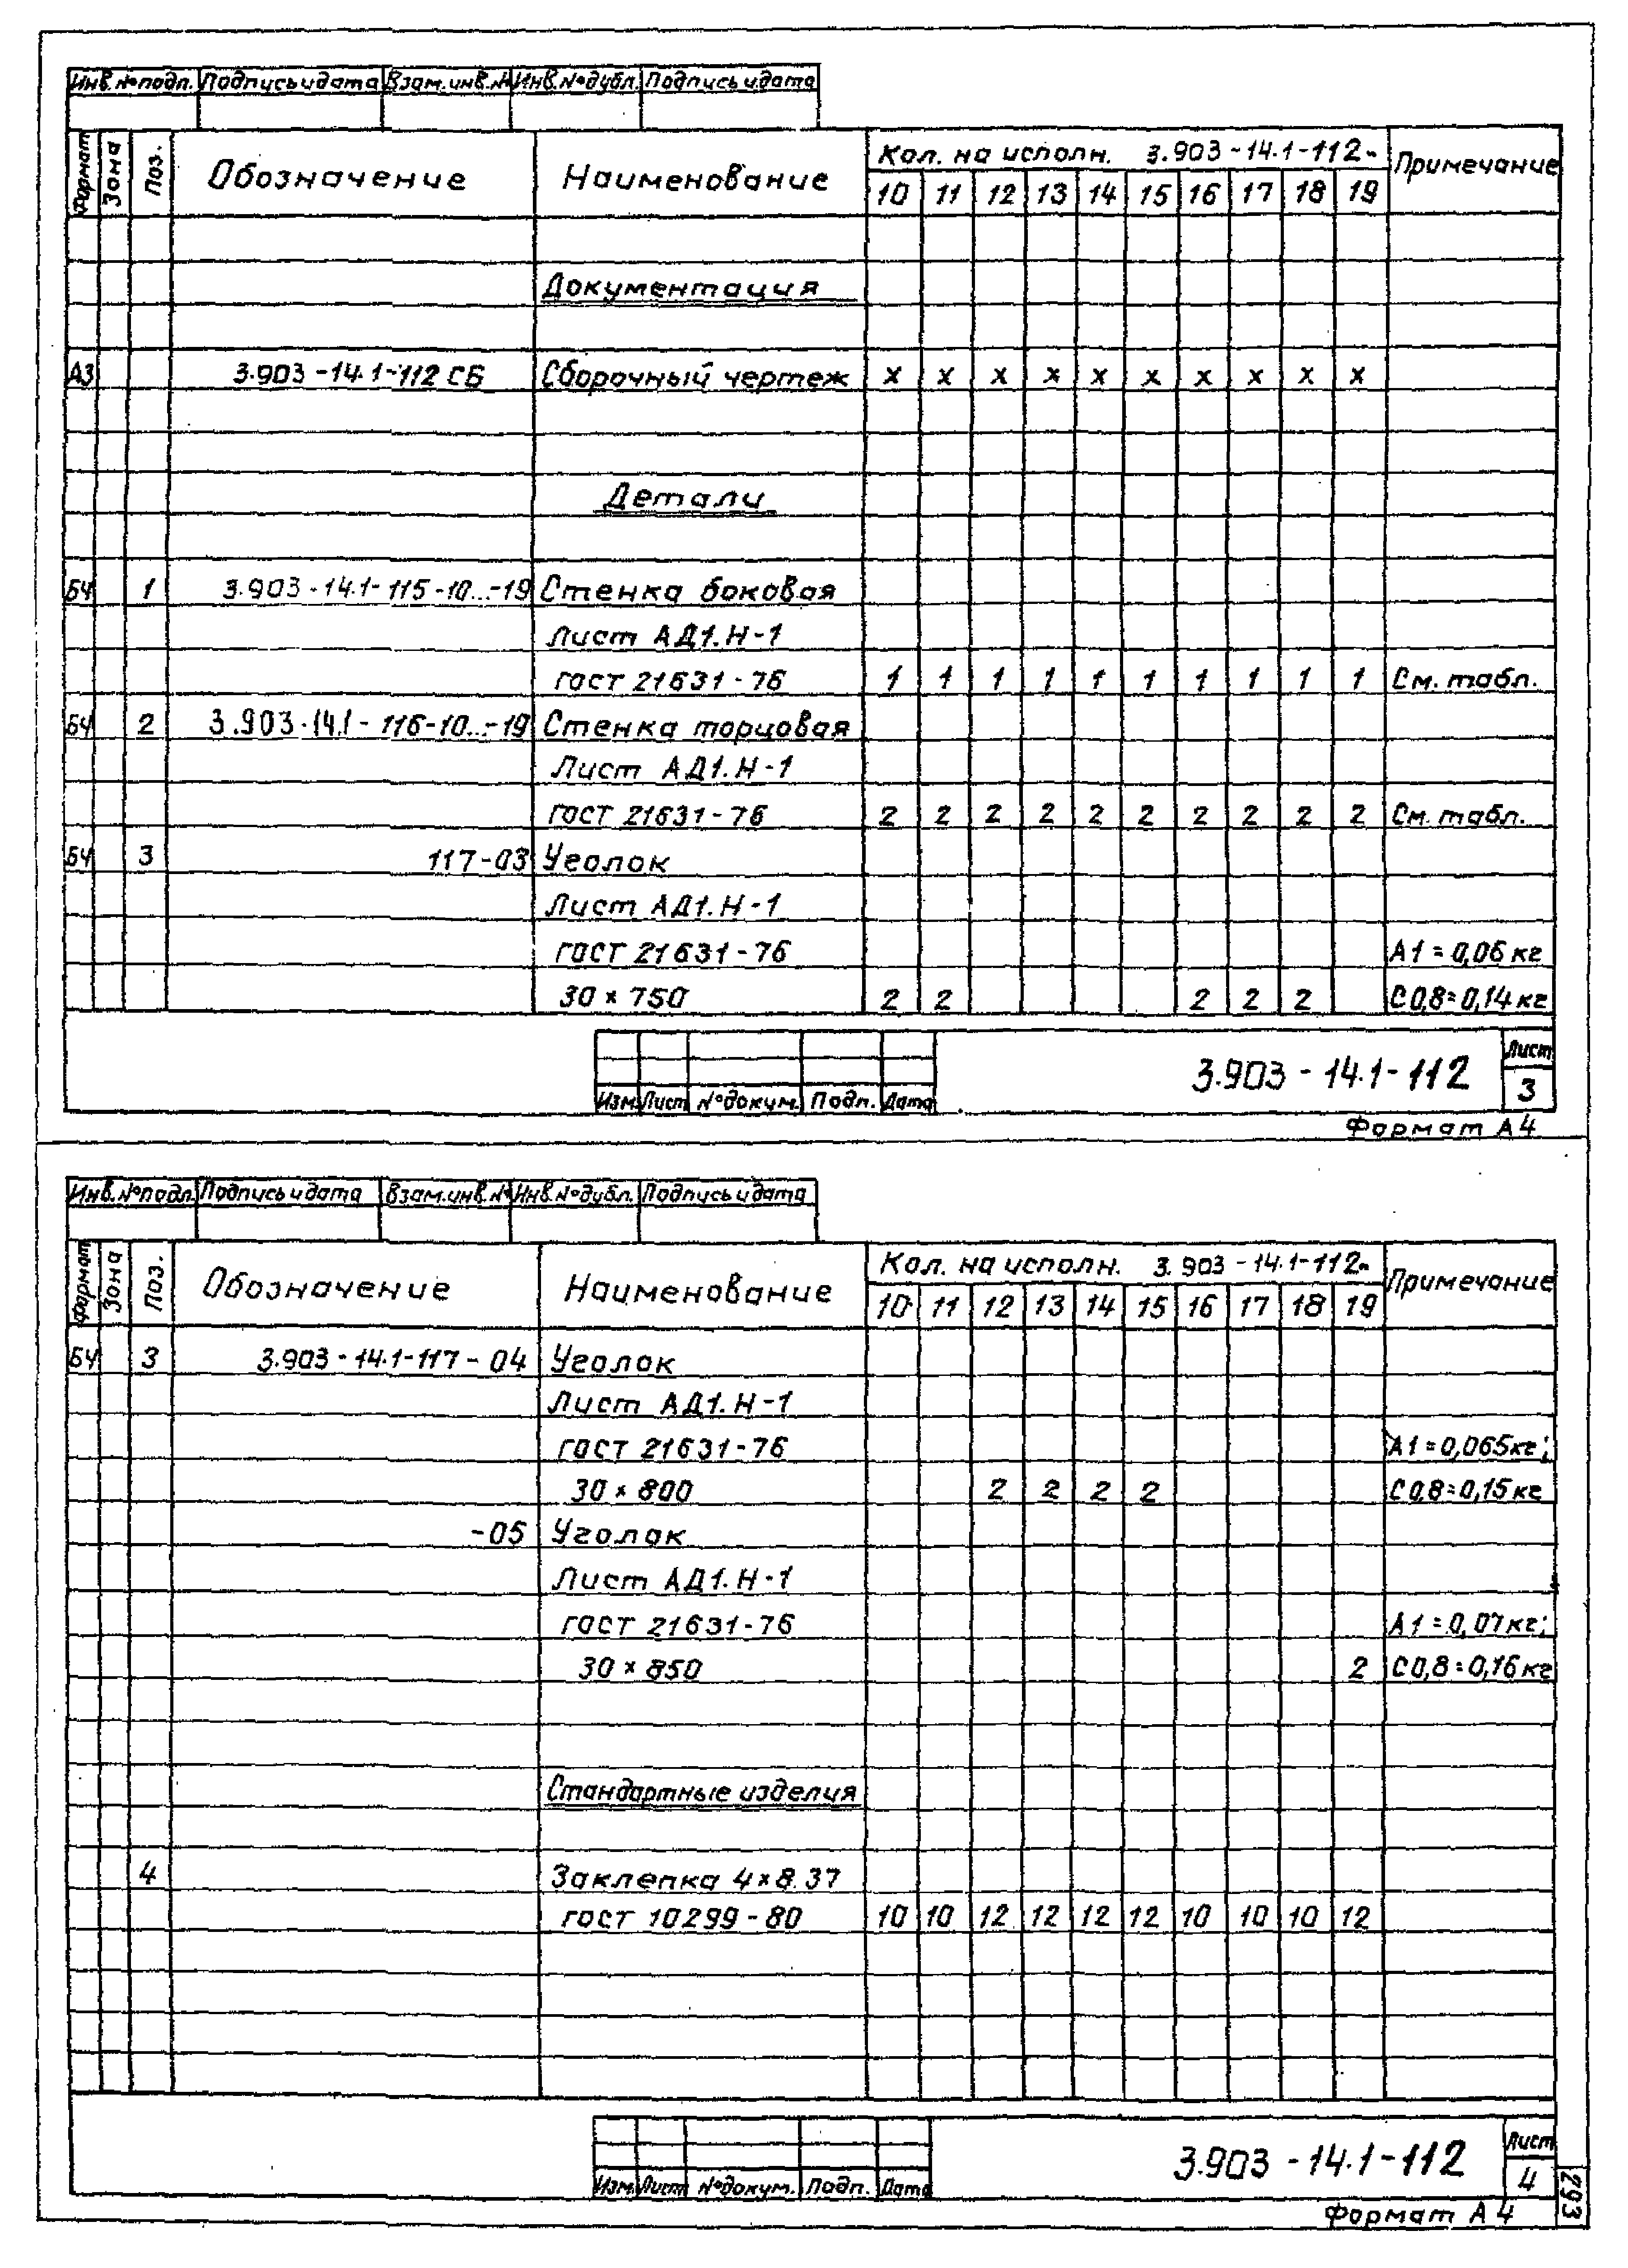 Инв.№подл. Подпись и дата Взам.инв.№ Инв.№дубл. Подпись и дата
Формат Зона Поз. Обозначение Наименование Кол. на исполн. 3.903-14.1-112- Примечание
10 11 12 13 14 15 16 17 18 19
Документация
А3 3.903-14.1-112 СБ Сборочный чертеж х х х х х х х х х х
Детали
БЧ 1 3.903-14.1-115-10...-19 Стенка боковая
Лист АД1.Н-1
ГОСТ 21631-76 1 1 1 1 1 1 1 1 1 1 См. табл.
БЧ 2 3.903-14.1-116-10...-19 Стенка торцовая
Лист АД1.Н-1
ГОСТ 21631-76 2 2 2 2 2 2 2 2 2 2 См. табл.
БЧ 3 117-03 Уголок
Лист АД1.Н-1
ГОСТ 21631-76 А1=0,06 кг
30×750 2 2 2 2 2 С0,8=0,14 кг
3.903-14.1-112 Лист
Изм. Лист №докум. Подп. Дата 3
Формат А4
Инв.№подл. Подпись и дата Взам.инв.№ Инв.№дубл. Подпись и дата
Формат Зона Поз. Обозначение Наименование Кол. на исполн. 3.903-14.1-112- Примечание
10 11 12 13 14 15 16 17 18 19
БЧ 3 3.903-14.1-117-04 Уголок
Лист АД1.Н-1
ГОСТ 21631-76 А1=0,065кг;
30×800 2 2 2 2 С0,8=0,15кг
-05 Уголок
Лист АД1.Н-1
ГОСТ 21631-76 А1=0,07кг;
30×850 2 С0,8=0,16кг
Стандартные изделия
4 Заклепка 4×8.37
ГОСТ 10299-80 10 10 12 12 12 12 10 10 10 12
3.903-14.1-112 Лист
Изм. Лист №докум. Подп. Дата 4
Формат А4
293